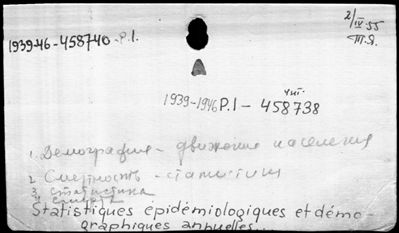 2/IV 55
1939-46-458740-P.I.
Т.Я.
чит.
1939-1946 P.I - 458738
1. Демография - движение населения
2 Смертность - статистика
3 статистика
4
Statistiques épidémiologiques et démo-
graphiques annuelles...